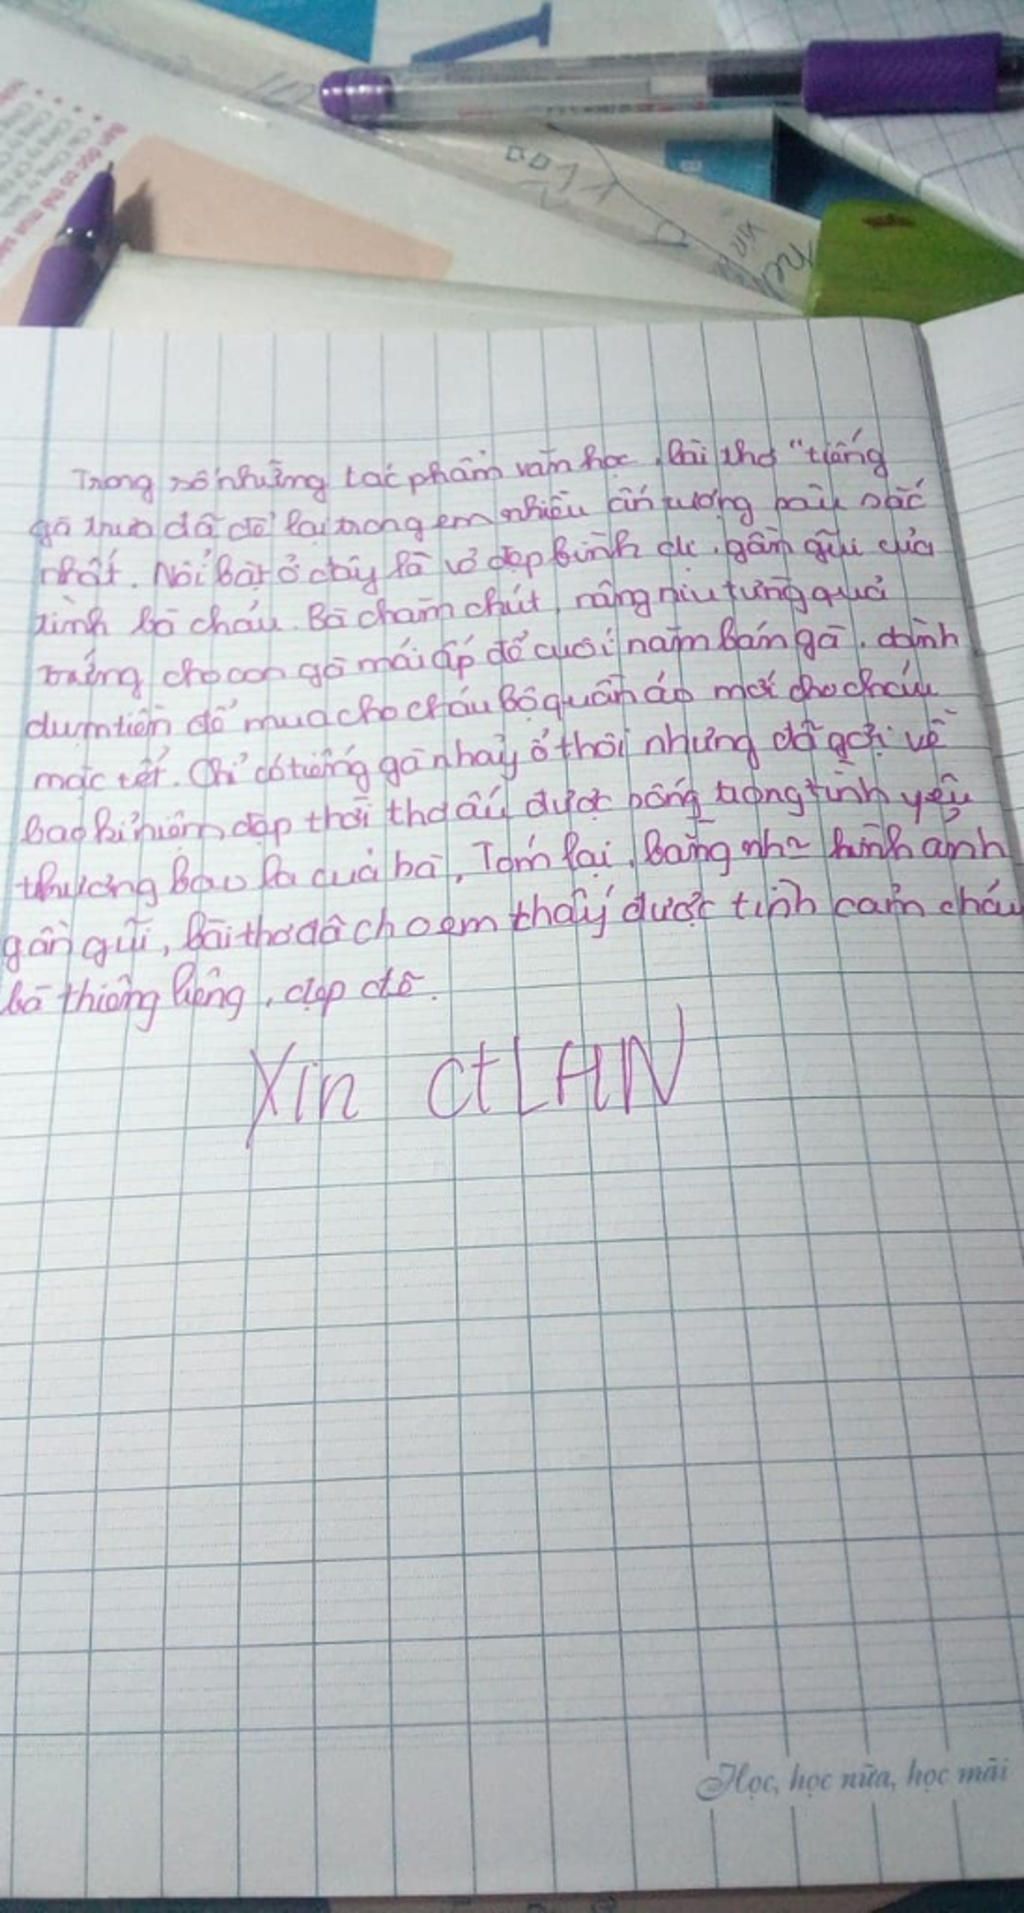 Trong số những tác phẩm văn học, bài thơ "tiếng
gà trưa đã để lại trong em nhiều ấn tượng sâu sắc
nhất. Nổi bật ở đây là vẻ đẹp bình dị, gần gũi của
tình bà cháu. Bà chăm chút, nâng niu từng quả
trứng cho con gà mái ấp để cuối năm bán gà, dành
dụm tiền để mua cho cháu bộ quần áo mới cho cháu
mặc tết. Chỉ có tiếng gà nhảy ổ thôi nhưng đã gợi về
bao kỉ niệm đẹp thời thơ ấu được sống trong tình yêu
thương bao la của bà. Tóm lại, bằng nh~ hình ảnh
gần gũi, bài thơ đã cho em thấy được tình cảm cháu
bà thiêng liêng, đẹp đẽ.
Xin ctLHN
Học, học nữa, học mãi